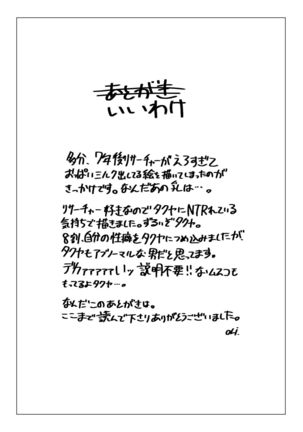 あとがき
いいわけ
多分、7年後リサーチャーがえろすぎて
おっぱいミルク出してる絵を描いてしまったのが
きっかけです。なんだあの乳は…。
リサーチャー好きなのでタクヤにNTRれている
気持ちで描きました。ずるいぞタクヤ。
8割、自分の性癖をタクヤにつめ込みましたが、
タクヤもアブノーマルな男だと思ってます。
デカァァァァァいッ 説明不要!! なムスコも
もってるよタクヤー。
なんだこのあとがきは。
ここまで読んで下さりありがとうございました。